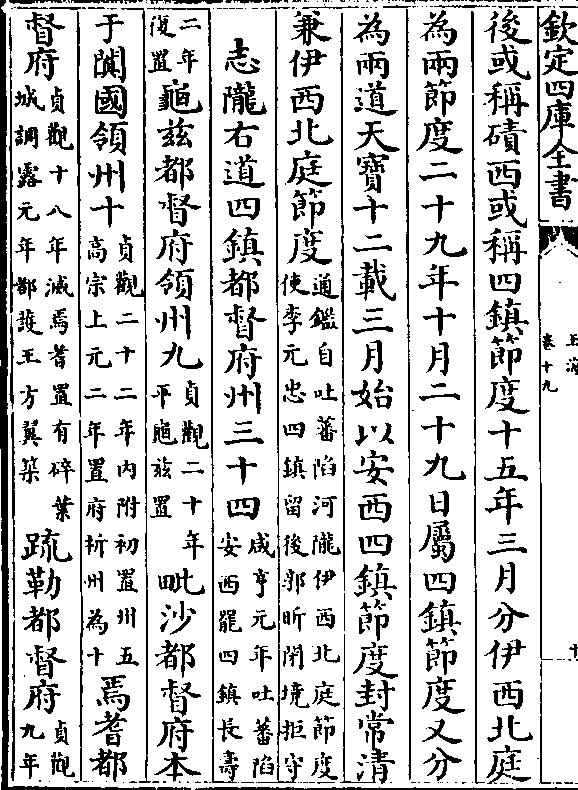 欽定四庫全書
玉海
卷十九
後或稱磧西或稱四鎮節度十五年三月分伊西北庭
為兩節度二十九年十月二十九日屬四鎮節度又分
為兩道天寶十二載三月始以安西四鎮節度封常清
兼伊西北庭節度通鑑自吐蕃陷河隴伊西北庭節度使李元忠四鎮留後郭昕閉境拒守
志隴右道四鎮都督府州三十四咸亨元年吐蕃陷安西罷四鎮長壽
二年復置龜兹都督府領州九貞觀二十年平龜兹置毗沙都督府本
于闐國領州十貞觀二十二年内附初置州五高宗上元二年置府析州為十焉耆都
督府貞觀十八年滅焉耆置有碎葉城調露元年都護王方翼築疏勒都督府貞觀九年